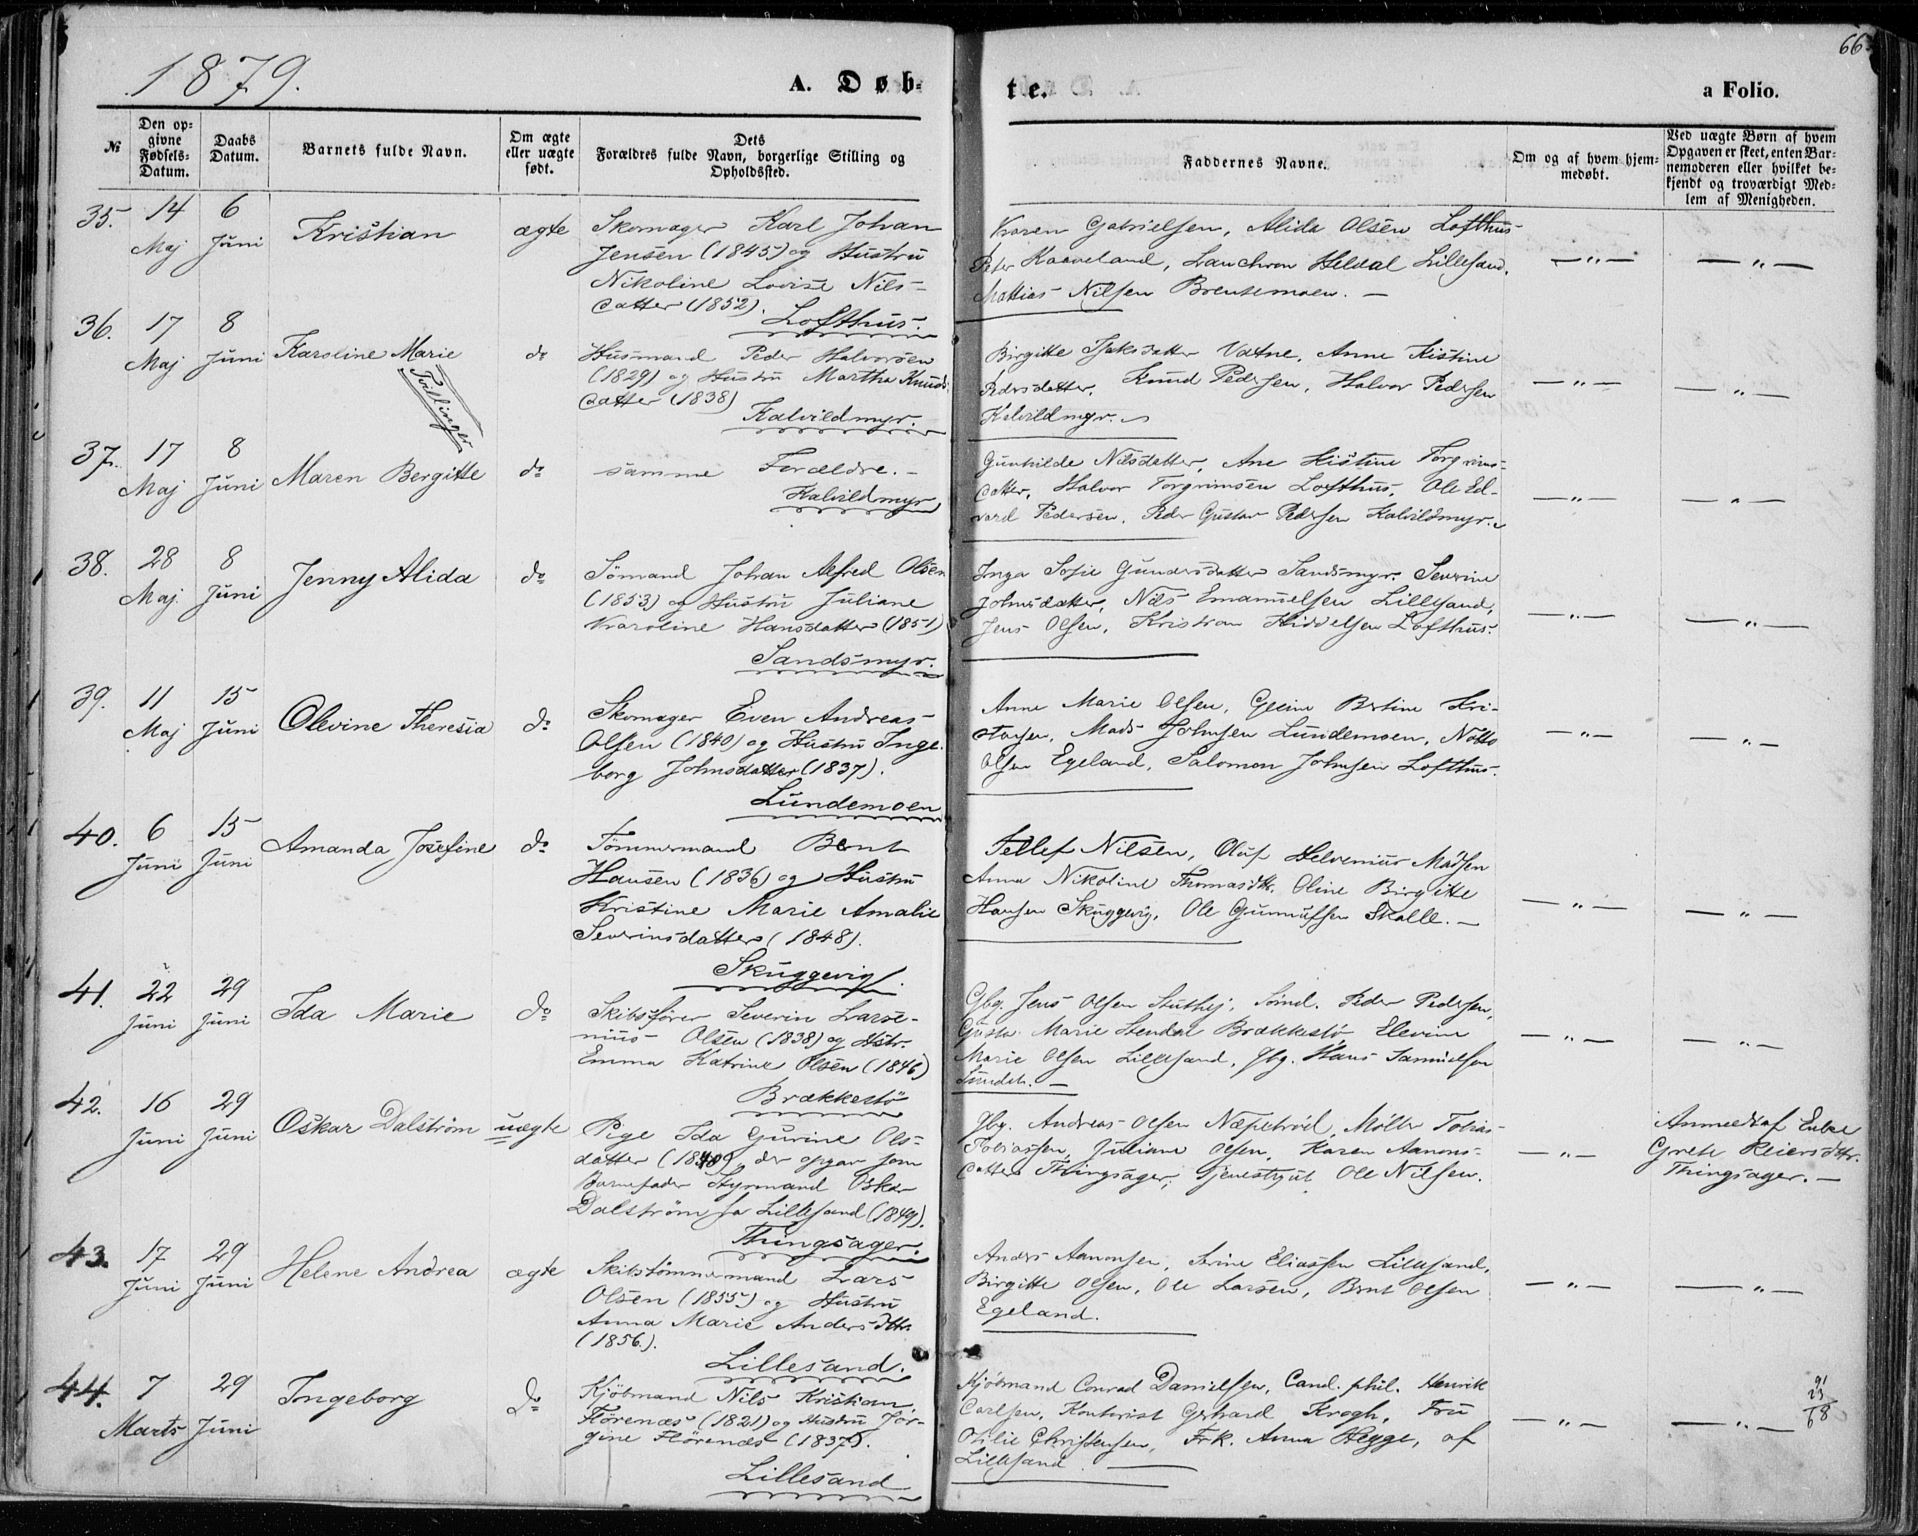 1879.
A. Døb-
te.
a Folio.
66
№
Den op-
givne
Fødsels-
Datum.
Daabs
Datum.
Barnets fulde Navn.
Om ægte
eller uægte
født.
Dets
Forældres fulde Navn, borgerlige Stilling og
Opholdssted.
Faddernes Navne.
Om og af hvem hjem-
medøbt.
Ved uægte Børn af hvem
Opgaven er skeet, enten Bar-
nemoderen eller hvilket be-
kjendt og troværdigt Med-
lem af Menigheden.
35. 14 Maj 6 Juni Kristian ægte
Skomager Karl Johan
Jensen (1845) og Hustru
Nikoline Lovise Nils-
datter (1852).
Lofthus.
Karen Gabrielsen, Alida Olsen Lofthus
Peter Kaaveland, Heldal Lillesand,
Mattias Nilsen Brentemoen. —
—"— —"—
36. 17 Maj 8 Juni Karoline Marie do
Tvillinger
Husmand Peder Halvorsen
(1829) og Hustru Martha Knuds-
datter (1838)
Kalvildmyr.
Birgitte Vatne, Anne Kistine
Pedersdatter, Knud Pedersen, Halvor Pedersen
Kalvildmyr.
—"— —"—
37. 17 Maj 8 Juni Maren Bergitte do
samme Forældre. —
Kalvildmyr
Gunhilde Nilsdatter, Ane Kistine Torgrims-
datter, Halvor Torgrimsen Lofthus, Ole Ed-
vard Pedersen, Peder Gustav Pedersen Kalvildmyr.
—"— —"—
38. 28 Maj 8 Juni Jenny Alida do
Sömand Johan Alfred Olsen
(1853) og Hustru Juliane
Karoline Hansdatter (1851)
Sandsmyr.
Inga Sofie Gundersdatter Sandsmyr. Severine
Johnsdatter, Nils Emanuelsen Lillesand,
Jens Olsen, Kristian Lofthus.
—"— —"—
39. 11 Maj 15 Juni Olevine Theresia do
Skomager Even Andreas
Olsen (1840) og Hustru Inge-
borg Johnsdatter (1837).
Lundemoen
Anne Marie Olsen, Bertine Kri-
stensen, Mads Johnsen Lundemoen,
Olsen Egeland, Salomon Johnsen Lofthus.
—"— —"—
40. 6 Juni 15 Juni Amanda Josefine do
Tömmermand Bent
Hansen (1836) og Hustru
Kristine Marie Amalie
Severinsdatter (1848).
Skuggevig.
Tellef Nilsen, Oluf Helvenius Madsen
Anna Nikoline Thomasdtr. Oline Birgitte
Hansen Skuggevig, Ole Gunnufsen Skalle. —
—"— —"—
41. 22 Juni 29 Juni Ida Marie do
Skibsfører Severin Larse-
nius Olsen (1838) og Hstr.
Emma Katrine Olsen (1846)
Brækkestö
Gbg. Jens Olsen Peder Pedersen,
Marie Brækkestö Elevine
Marie Olsen Lillesand, Gbg. Hans Samuelsen
—"— —"—
42. 16 Juni 29 Juni Oskar Dalström uægte
Pige Ida Gurine Ols-
datter (1840), der opgav som
Barnefader Styrmand Oskar
Dalström fra Lillesand (1849).
Thingsager.
Gbg. Andreas Olsen Møller Tobias
Tobiassen, Juliane Olsen, Karen Aanons-
datter Thingsager, Tjenestegut Ole Nilsen.
—"—
Anmeldt af Enke
Grete Reiersdtr.
Thingsager. —
43. 17 Juni 29 Juni Helene Andrea ægte
Skibstömmermand Lars
Olsen (1855) og Hustru
Anna Marie Andersdtr.
(1856).
Lillesand.
Anders Aanonsen, Serine Eliassen Lillesand,
Birgitte Olsen, Ole Larsen, Bent Olsen
Egeland.
—"— —"—
44. 7 Marts 29 Juni Ingeborg do
Kjöbmand Nils Kristian
Flörenæs (1821) og Hustru Jør-
gine Flörenæs (1837).
Lillesand
Kjöbmand Conrad Danielsen, Cand. phil. Henrik
Carlsen, Kontorist Gerhard Krogh, Fru
Otilie Christensen, Frk. Anna Hegge, af
Lillesand.
—"— —"—